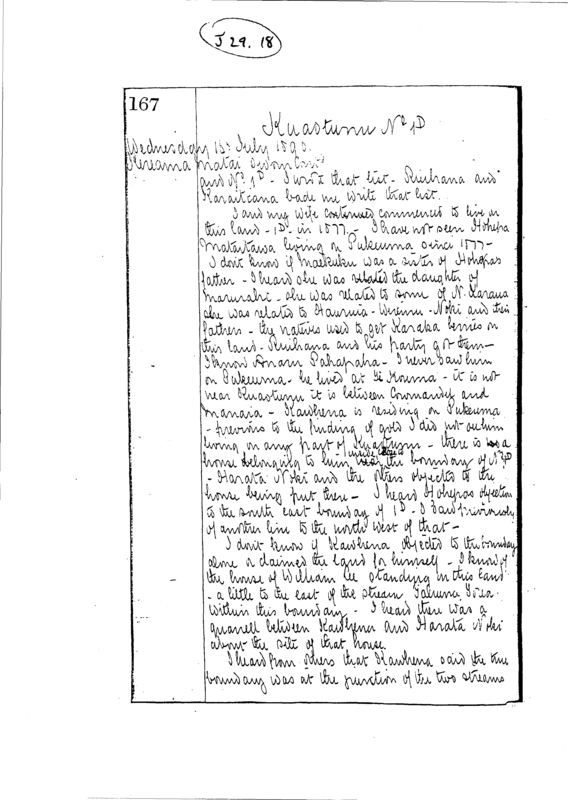 J 29. 18
167
Kuaotunu No 1D
Wednesday 16 July 1890.
Hereama Matai
and No 1D - I wrote that list - Ruihana and
Karaitiana bade me write that list.
I and my wife continued commenced to live on
this land - 1D in 1877 - I have not seen Hohepa
Mataitawa living on Pukeuma since 1877 -
I don't know if Maekuku was a sister of Hohepas
father - I heard she was related the daughter of
she was related to some of N. Karaua
she was related to Hauruia - Wiremu - Noki and their
fathers - the natives used to get Karaka berries on
this land - Ruihana and his party got them -
I know Anaru Pahapaha - I never saw him
on Pukeuma - he lived at Ti Kouma - it is not
near Kuaotunu it is between Coromandel and
Manaia - Kawhena is residing on Pukeuma
- previous to the finding of gold I did not see him
living on any part of Kuaotunu - there is a
house belonging to him inside the boundary of No 1D
- Harata Noki and the others objected to the
house being put there - I heard Hohepas objection
to the south east boundary of 1D - I saw previously
of another line to the north west of that -
I don't know if Kawhena objected to the boundary
alone or claimed the land for himself - I know of
the house of William Lee standing on this land
- a little to the east of the stream
within this boundary - I heard there was a
quarrell between Kawhena and Harata Noki
about the site of that house
I heard from others that Kawhena said the true
boundary was at the junction of the two streams